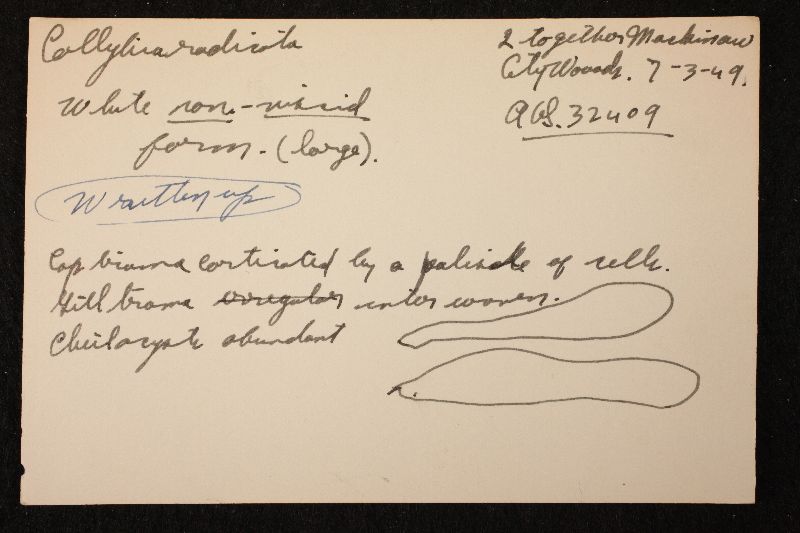 Collybia radicata
2 together Mackinaw
City Woods. 7-3-49.
White non-viscid
AHS. 32409
form. (large).
Written up
Cap trama corticated by a palisade of cells.
Gill trama irregular interwoven.
Cheilocysts abundant